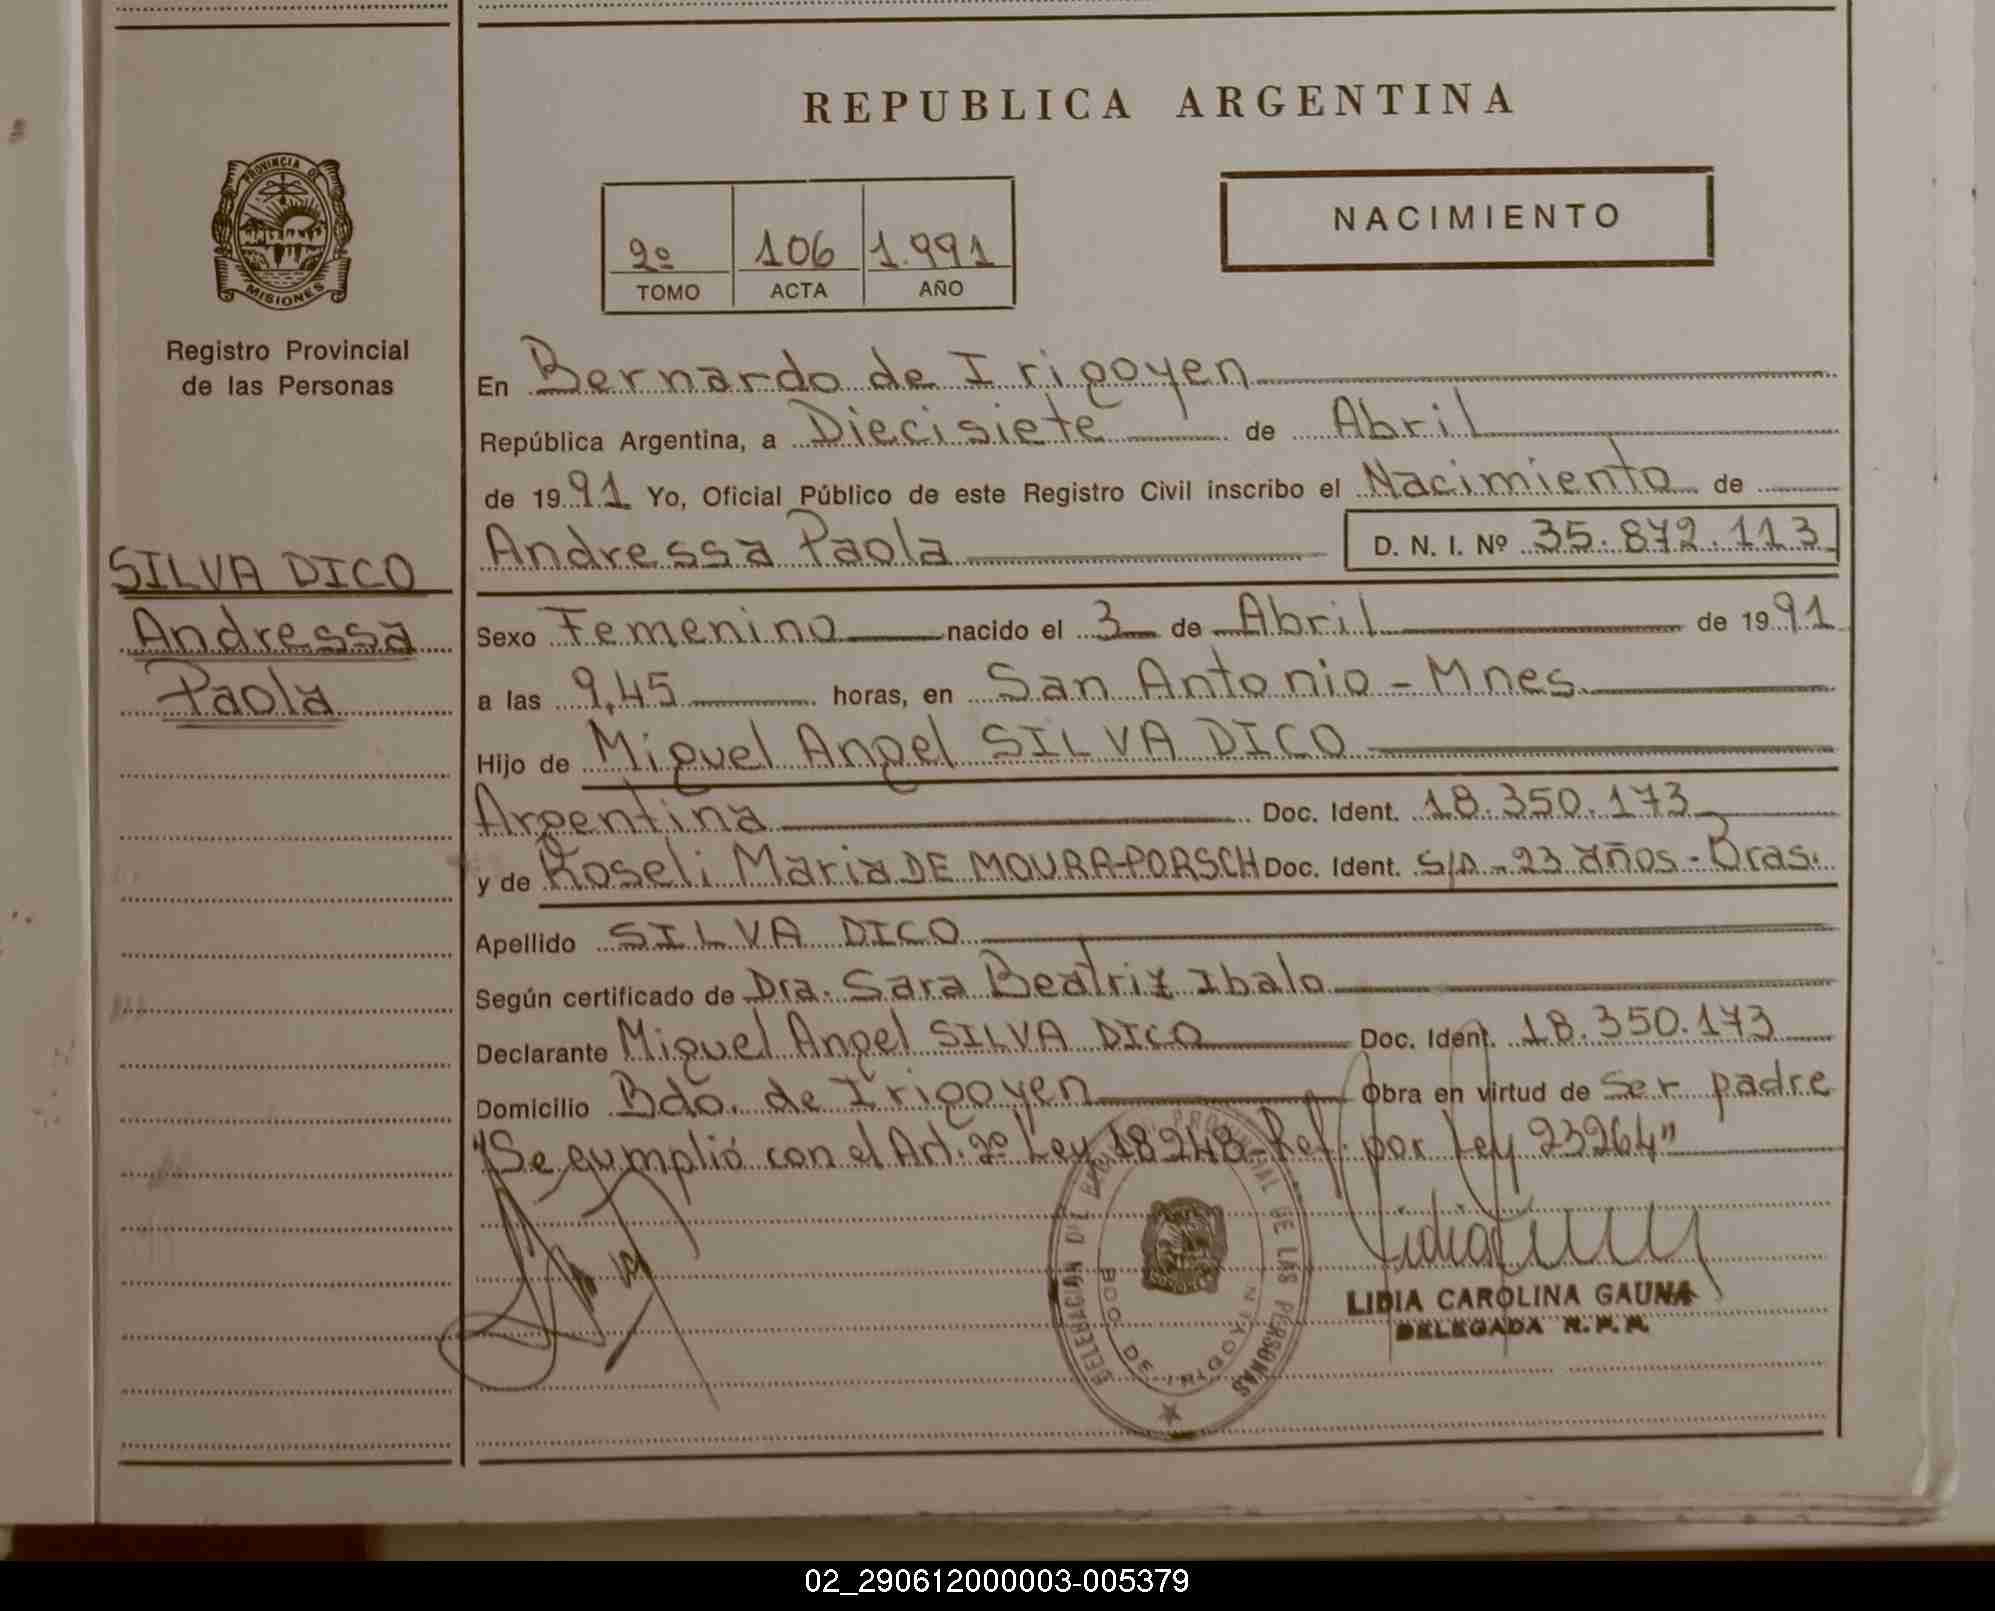 REPUBLICA ARGENTINA
PROVINCIA DE
MISIONES
Registro Provincial
de las Personas
NACIMIENTO
2º 106 1.991
TOMO ACTA AÑO
En Bernardo de Irigoyen
República Argentina, a Diecisiete de Abril
de 1991 Yo, Oficial Público de este Registro Civil inscribo el Nacimiento de
Andressa Paola D. N. I. Nº 35.872.113
SILVA DICO
Andressa
Paola
Sexo Femenino nacido el 3 de Abril de 1991
a las 9,45 horas, en San Antonio - Mnes.
Hijo de Miguel Angel SILVA DICO
Argentina Doc. Ident. 18.350.173
y de Roseli Maria DE MOURA-PORSCH Doc. Ident. S/D - 23 años - Bras.
Apellido SILVA DICO
Según certificado de Dra. Sara Beatriz Ibalo
Declarante Miguel Angel SILVA DICO Doc. Ident. 18.350.173
Domicilio Bdo. de Irigoyen Obra en virtud de Ser padre
"Se cumplió con el Art. 2º Ley 18248 - Ref. por Ley 23264"
DELEGACION DEL PROVINCIAL DE LAS PERSONAS
BDO DE IRIGOYEN
LIDIA CAROLINA GAUNA
DELEGADA R.P.P.
02_290612000003-005379